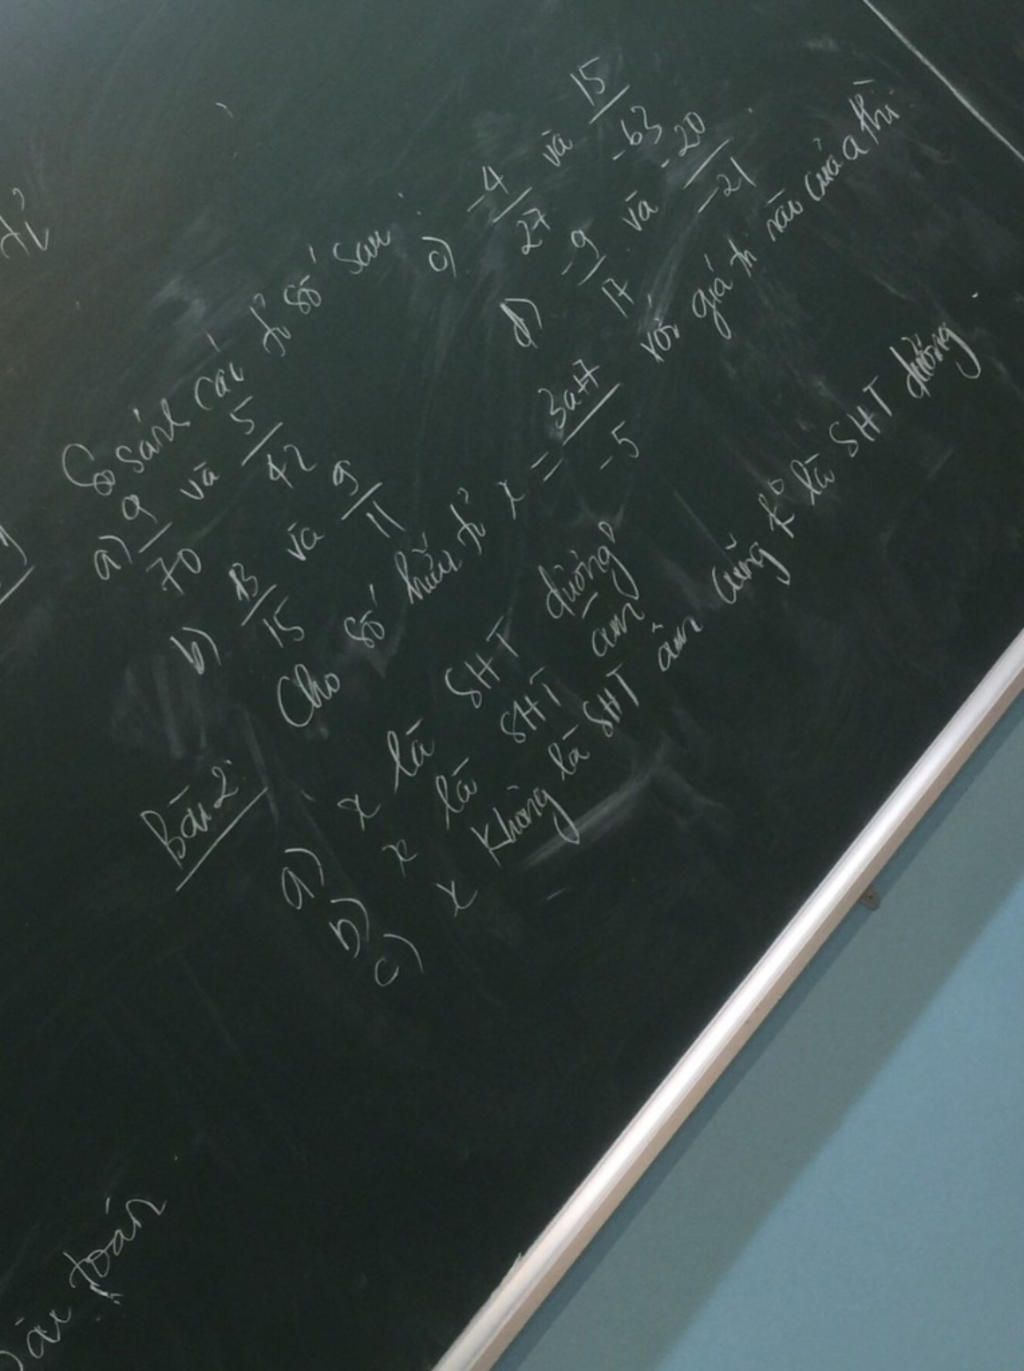 tỉ
So sánh các tỉ số sau:
a) 9/70 và 5/42
b) 13/15 và 9/11
c) -4/27 và 15/-63
d) -9/17 và -20/-21
Bài 2: Cho số hữu tỉ x = 3a+7/-5 với giá trị nào của a thì
a) x là SHT dương
b) x là SHT âm
c) x không là SHT âm cũng k là SHT dương
toán